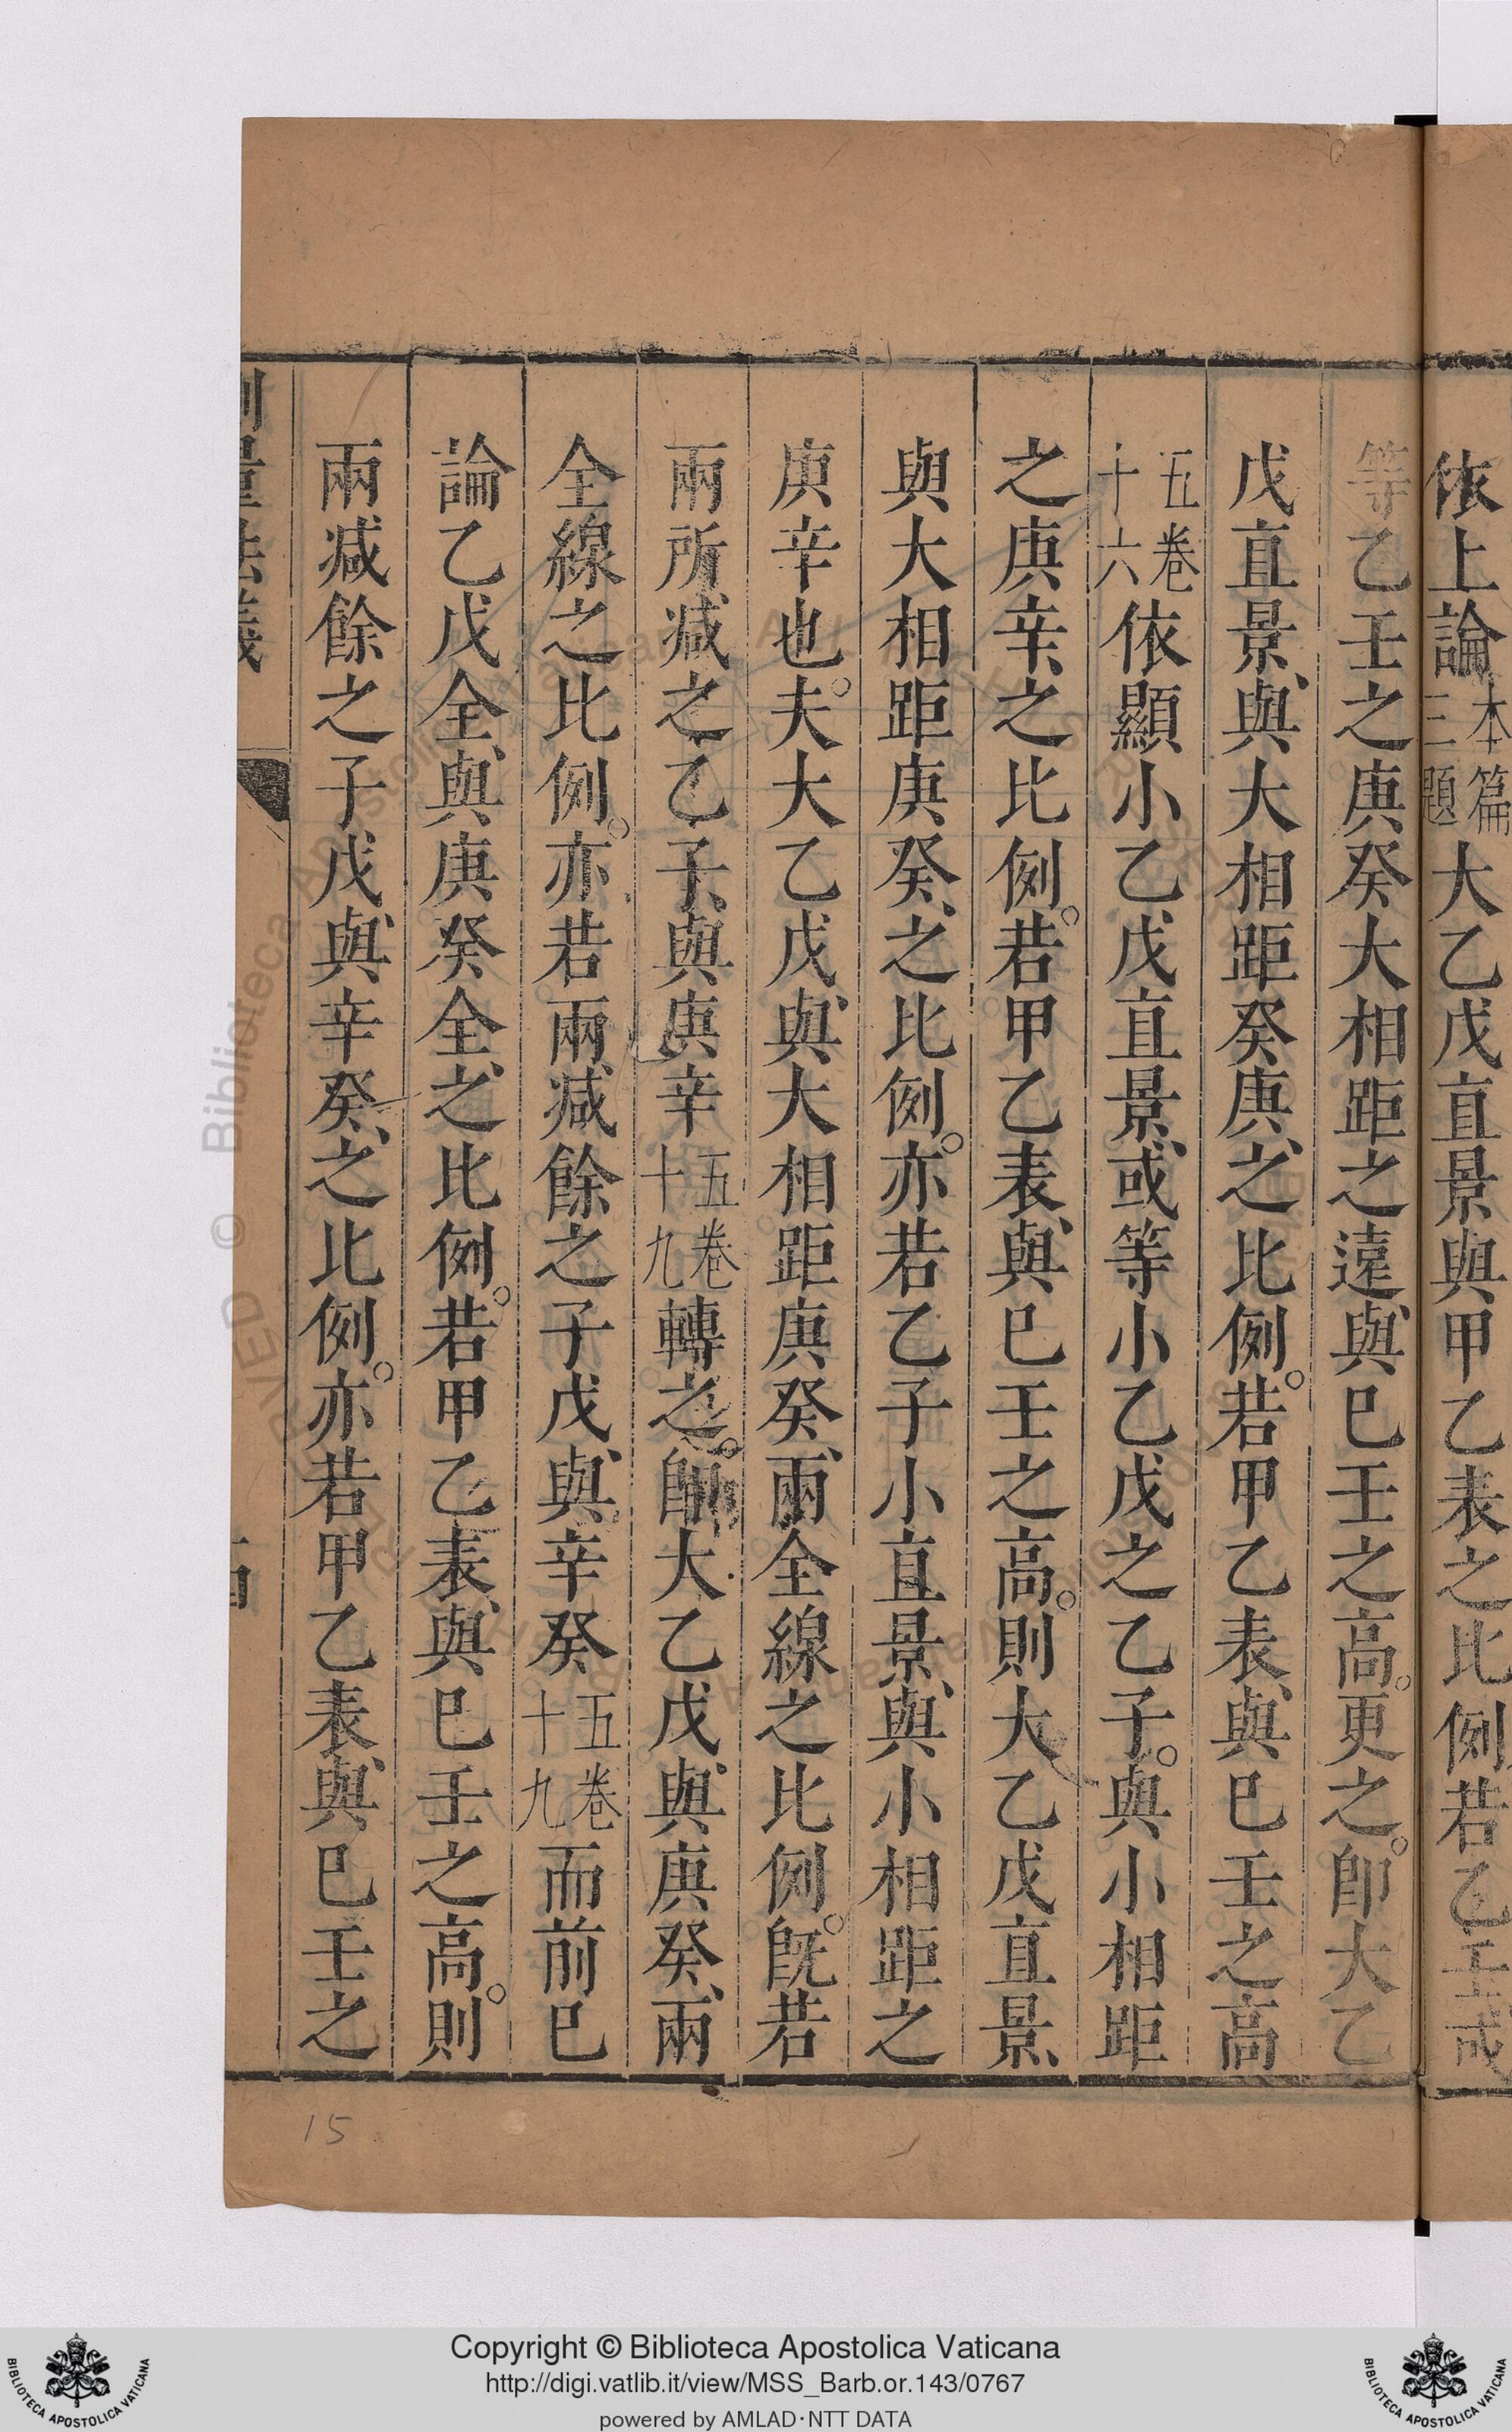 依上論本篇三題大乙戊直景與甲乙表之比例若乙壬或
等乙壬之庚癸大相距之遠、與巳壬之高。更之。卽大乙
戊直景、與大相距癸庚、之比例。若甲乙表、與巳壬之高
五卷十六依顯小乙戊直景、或等小乙戊之乙子。與小相距
之庚辛、之比例。若甲乙表、與巳壬之高。則大乙戊直景、
與大相距庚癸、之比例。亦若乙子小直景、與小相距之
庚辛也。夫大乙戊、與大相距庚癸、兩全線之比例。旣若
兩所减之乙子、與庚辛五卷十九轉之。卽大乙戊、與庚癸、兩
全線之比例。亦若兩减餘之子戊、與辛癸五卷十九而前巳
論乙戊全、與庚癸全、之比例。若甲乙表、與巳壬之高。則
兩减餘之子戊、與辛癸、之比例。亦若甲乙表、與巳壬之
測量法義
15
© Biblioteca Apostolica Vaticana
Copyright © Biblioteca Apostolica Vaticana
http://digi.vatlib.it/view/MSS_Barb.or.143/0767
powered by AMLAD·NTT DATA
BIBLIOTECA APOSTOLICA VATICANA
BIBLIOTECA APOSTOLICA VATICANA